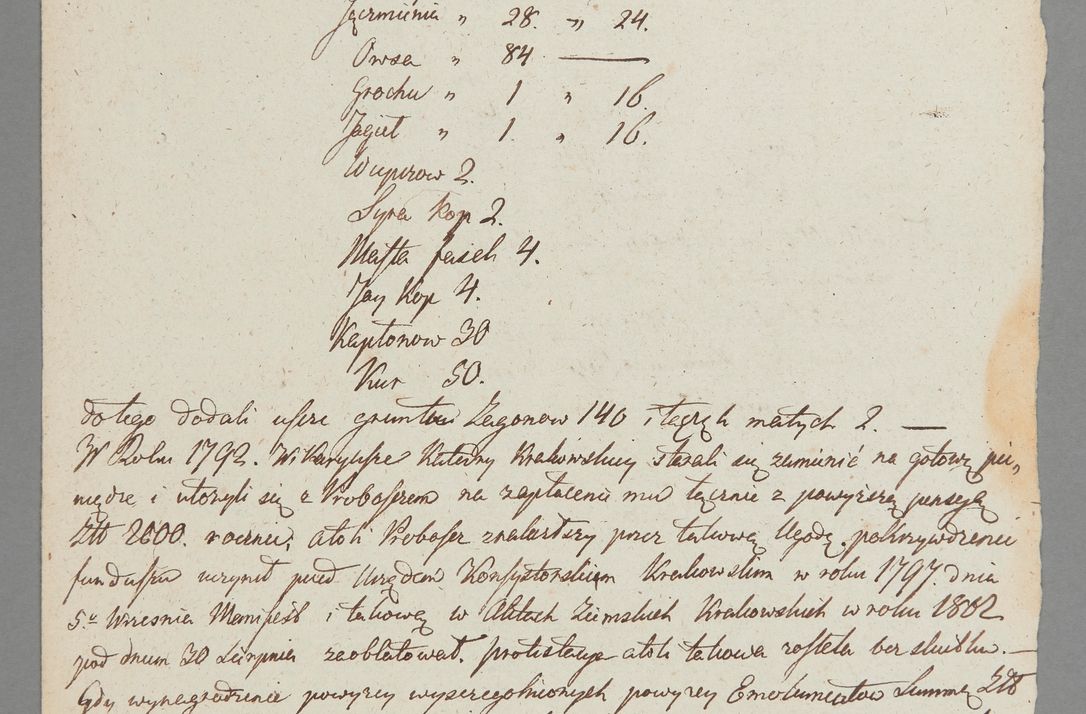 Jęczmienia " 28. " 24.
Owsa " 84 —
Grochu " 1 " 16.
Jagieł " 1. " 16.
Wieprzow 2.
Syra kop 2.
Masła fasek 4.
Jay kop 4.
Kapłonow 30
Kur 50.
do tego dodali ieszcze gruntu Zagonow 140 i łączek małych 2. —
W Roku 1792. Wikaryusze Katedry Krakowskiey starali się zamienić na gotowe pie„
niądze i ułożyli się z Proboszczem na zapłacenie mu łącznie z powyższą pensyą
Złt 2000. rocznie; atoli Proboszcz znalazłszy przez takową Ugodę pokrzywdzenie
funduszu uczynił przed Urzędem Konsystorskim Krakowskim w roku 1797 dnia
5º Wrzesnia Manifest i takową w Aktach Ziemskich Krakowskich w roku 1802
pod dniem 30 Sierpnia zaoblatował. protestacya atoli takowa została bez skutku. —
Gdy wynagrodzenie powyżey wyszczegolnionych powyżey Emolumentow Summą Złt